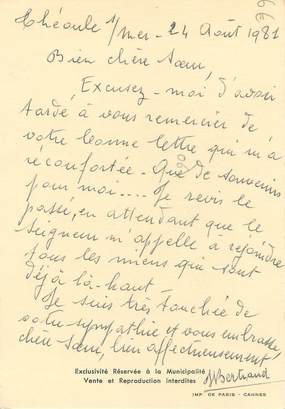 Théoule s/mer - 24 Août 1981
Bien chère Sœur,
Excusez-moi d'avoir
tardé à vous remercier de
votre bonne lettre qui m'a
réconfortée - Que de souvenirs
pour moi.... Je revis le
passé, en attendant que le
Seigneur m'appelle à rejoindre
tous les miens qui sont
déjà là-haut -
Je suis très touchée de
votre sympathie et vous embrasse
chère Sœur, bien affectueusement
Bertrand
Exclusivité Réservée à la Municipalité
Vente et Reproduction interdites
IMP. DE PARIS - CANNES